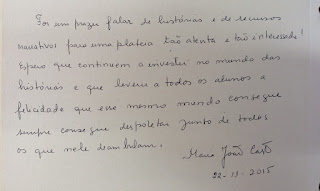 Foi um prazer falar de histórias e de recursos
narrativos para uma plateia tão atenta e tão interessada!
Espero que continuem a investir no mundo das
histórias e que levem a todos os alunos a
felicidade que esse mesmo mundo consegue
sempre consegue despoletar junto de todos
os que nele deambulam.
Maria João
22-11-2015